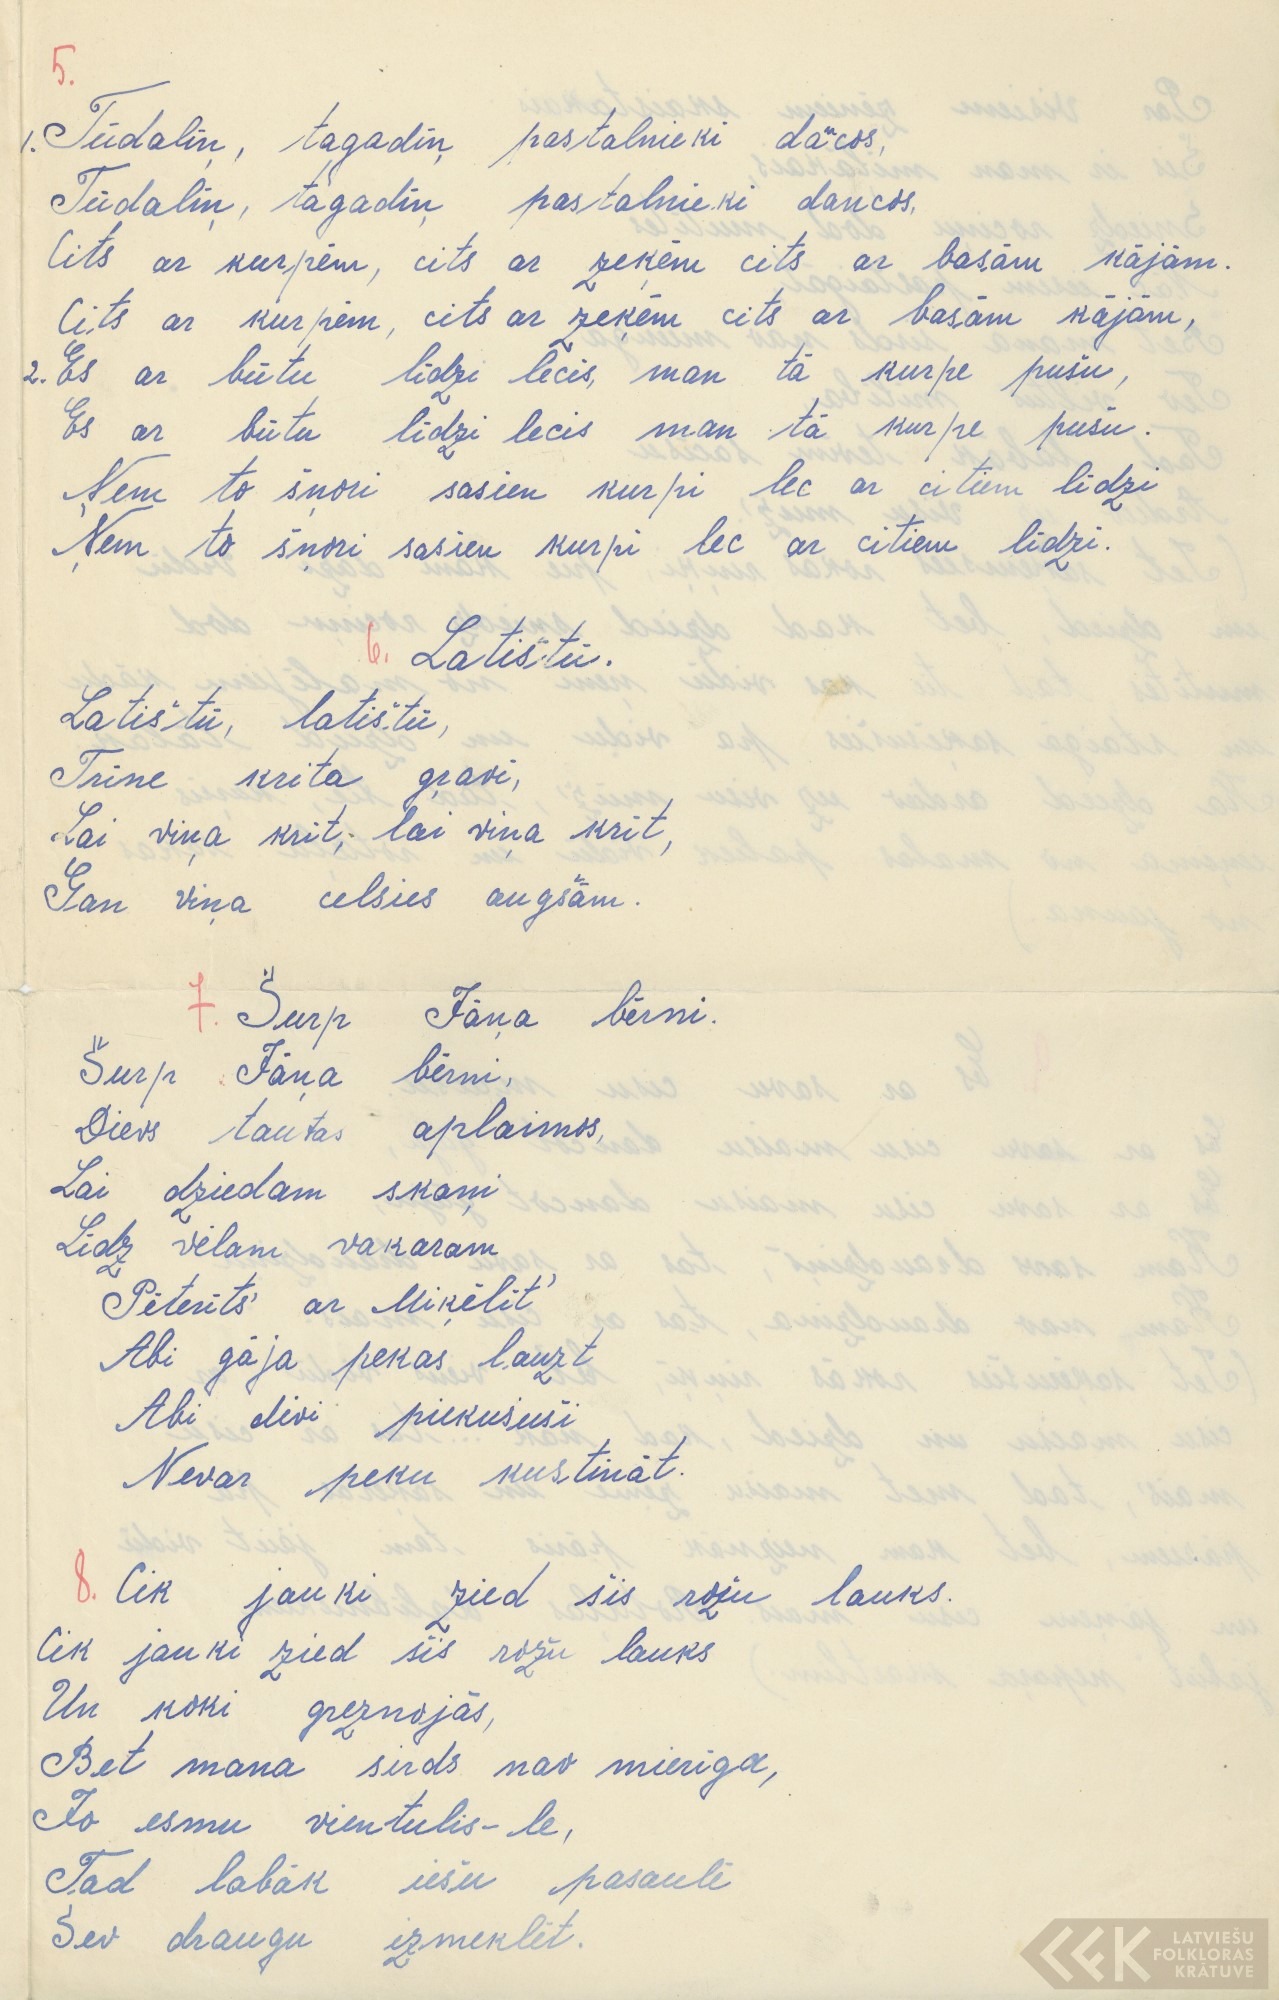 5.
1. Tūdaliņ, tagadiņ pastalnieki dancos,
Tūdaliņ, tagadiņ pastalnieki dancos,
Cits ar kurpēm, cits ar zeķēm cits ar basām kājām.
Cits ar kurpēm, cits ar zeķēm cits ar basām kājām,
2. Es ar būtu līdzi lēcis, man tā kurpe pušu,
Es ar būtu līdzi lēcis man tā kurpe pušu.
Ņem to šņori sasien kurpi lec ar citiem līdzi
Ņem to šņori sasien kurpi lec ar citiem līdzi.
6. Latištū.
Latištū, latištū,
Trīne krita grāvī,
Lai viņa krīt, lai viņa krīt,
Gan viņa celsies augšām.
7. Šurp Jāņa bērni.
Šurp Jāņa bērni,
Dievs tautas aplaimos,
Lai dziedam skaņi
Līdz vēlam vakaram
Pēterīts' ar Miķēlīt'
Abi gāja pekas lauzt
Abi divi piekusuši
Nevar peku kustināt.
8. Cik jauki zied šis rožu lauks.
Cik jauki zied šis rožu lauks
Un koki greznojās,
Bet mana sirds nav mierīga,
Jo esmu vientulis-le,
Tad labāk iešu pasaulē
Sev draugu izmeklēt.
LATVIEŠU
FOLKLORAS
KRĀTUVE